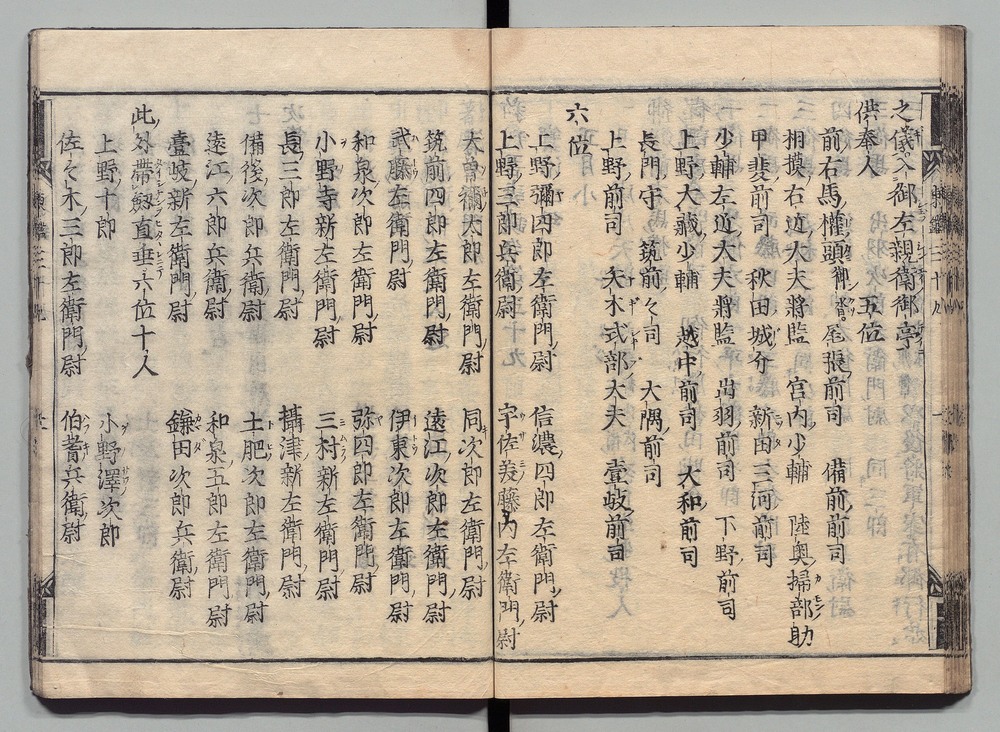 之儀入御左親衛御亭
供奉人　五位
前右馬權頭御沓　尾張前司　備前前司
相摸右近大夫將監　宮内少輔　陸奥掃部助
甲斐前司　秋田城介　新田三河前司
少輔左近大夫將監　出羽前司　下野前司
上野大藏少輔　越中前司　大和前司
長門守　筑前々司　大隅前司
上野前司　矢木式部大夫　壹岐前司
六位
上野彌四郎左衛門尉　信濃四郎左衛門尉
上野三郎兵衛尉　宇佐美藤内左衛門尉
大曽禰太郎左衛門尉　同次郎左衛門尉
筑前四郎左衛門尉　遠江次郎左衛門尉
武藤左衛門尉　伊東次郎左衛門尉
和泉次郎左衛門尉　弥四郎左衛門尉
小野寺新左衛門尉　三村新左衛門尉
長三郎左衛門尉　攝津新左衛門尉
備後次郎兵衛尉　土肥次郎左衛門尉
遠江六郎左衛門尉　和泉五郎左衛門尉
壹岐新左衛門尉　鎌田次郎兵衛尉
此外帶劔直垂六位十人
上野十郎　小野澤次郎
佐々木三郎左衛門尉　伯耆兵衛尉